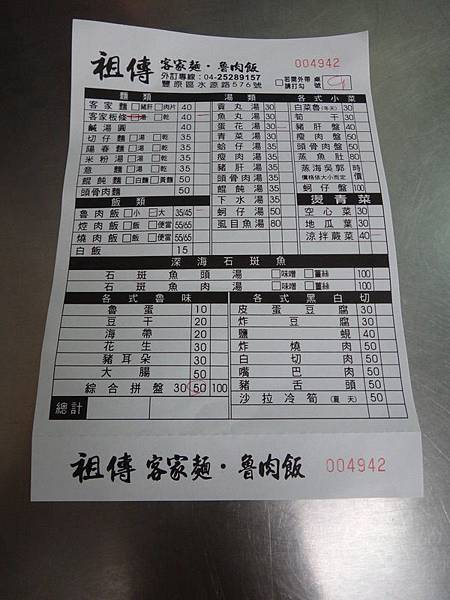 祖傳 客家麵・魯肉飯
004942
外訂專線：04-25289157
豐原區水源路576號
□若需外帶請打勾
桌號
麵類
客家麵 □豬肝 □肉片 40
客家板條 □湯 □乾 40
鹹湯圓 40
切仔麵 □湯 □乾 35
陽春麵 □湯 □乾 35
米粉湯 □湯 □乾 35
意麵 □湯 □乾 35
餛飩麵 □白麵 □黃麵 50
頭骨肉麵 50
飯類
魯肉飯 □小 □大 35/45
焢肉飯 □飯 □便當 55/65
燒肉飯 □飯 □便當 55/65
白飯 15
湯類
貢丸湯 30
魚丸湯 30
蛋花湯 30
青菜湯 30
蛤仔湯 35
瘦肉湯 35
豬肝湯 35
頭骨肉湯 35
餛飩湯 35
下水湯 35
蚵仔湯 50
虱目魚湯 80
各式小菜
白菜魯(冬天) 30
筍干 30
豬肝盤 40
瘦肉盤 50
頭骨肉盤 50
蒸魚肚 80
蒸海吳郭魚 時價
價格依大小而定
蚵仔盤 100
燙青菜
空心菜 30
地瓜葉 30
涼拌蕨菜 40
深海石斑魚
石斑魚頭湯 □味噌 □薑絲 100
石斑魚肉湯 □味噌 □薑絲 100
各式魯味
魯蛋 10
豆干 20
海帶 20
花生 30
豬耳朵 30
大腸 50
綜合拼盤 30 50 100
總計
各式黑白切
皮蛋豆腐 30
炸豆腐 30
鹽蜆 40
炸燒肉 50
白切肉 50
嘴巴肉 50
豬舌頭 50
沙拉冷筍(夏天) 50
祖傳 客家麵・魯肉飯 004942